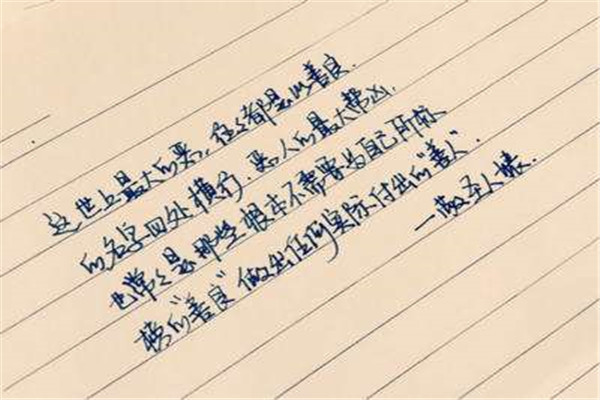 这世上最大的恶，往往都是以善良
的名字四处横行，恶人的最大帮凶，
也常常是那些根本不需要为自己所标
榜的"善良"做出任何实际付出的"善人"。
一散五人